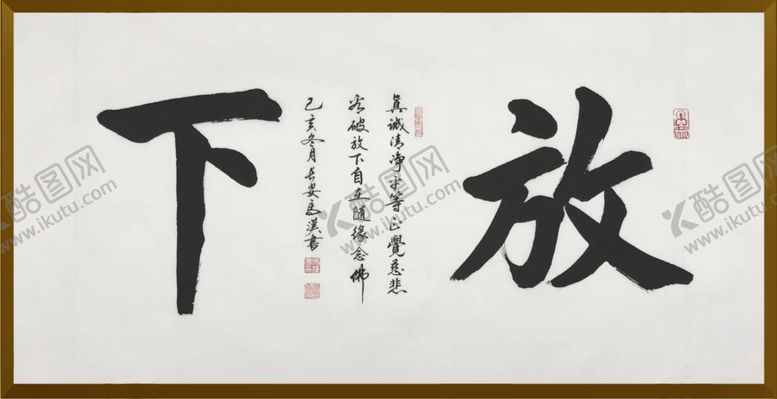 放下
真诚清净平等正觉慈悲
看破放下自在随缘念佛
己亥冬月长安马汉书
酷图网
www.ikutu.com